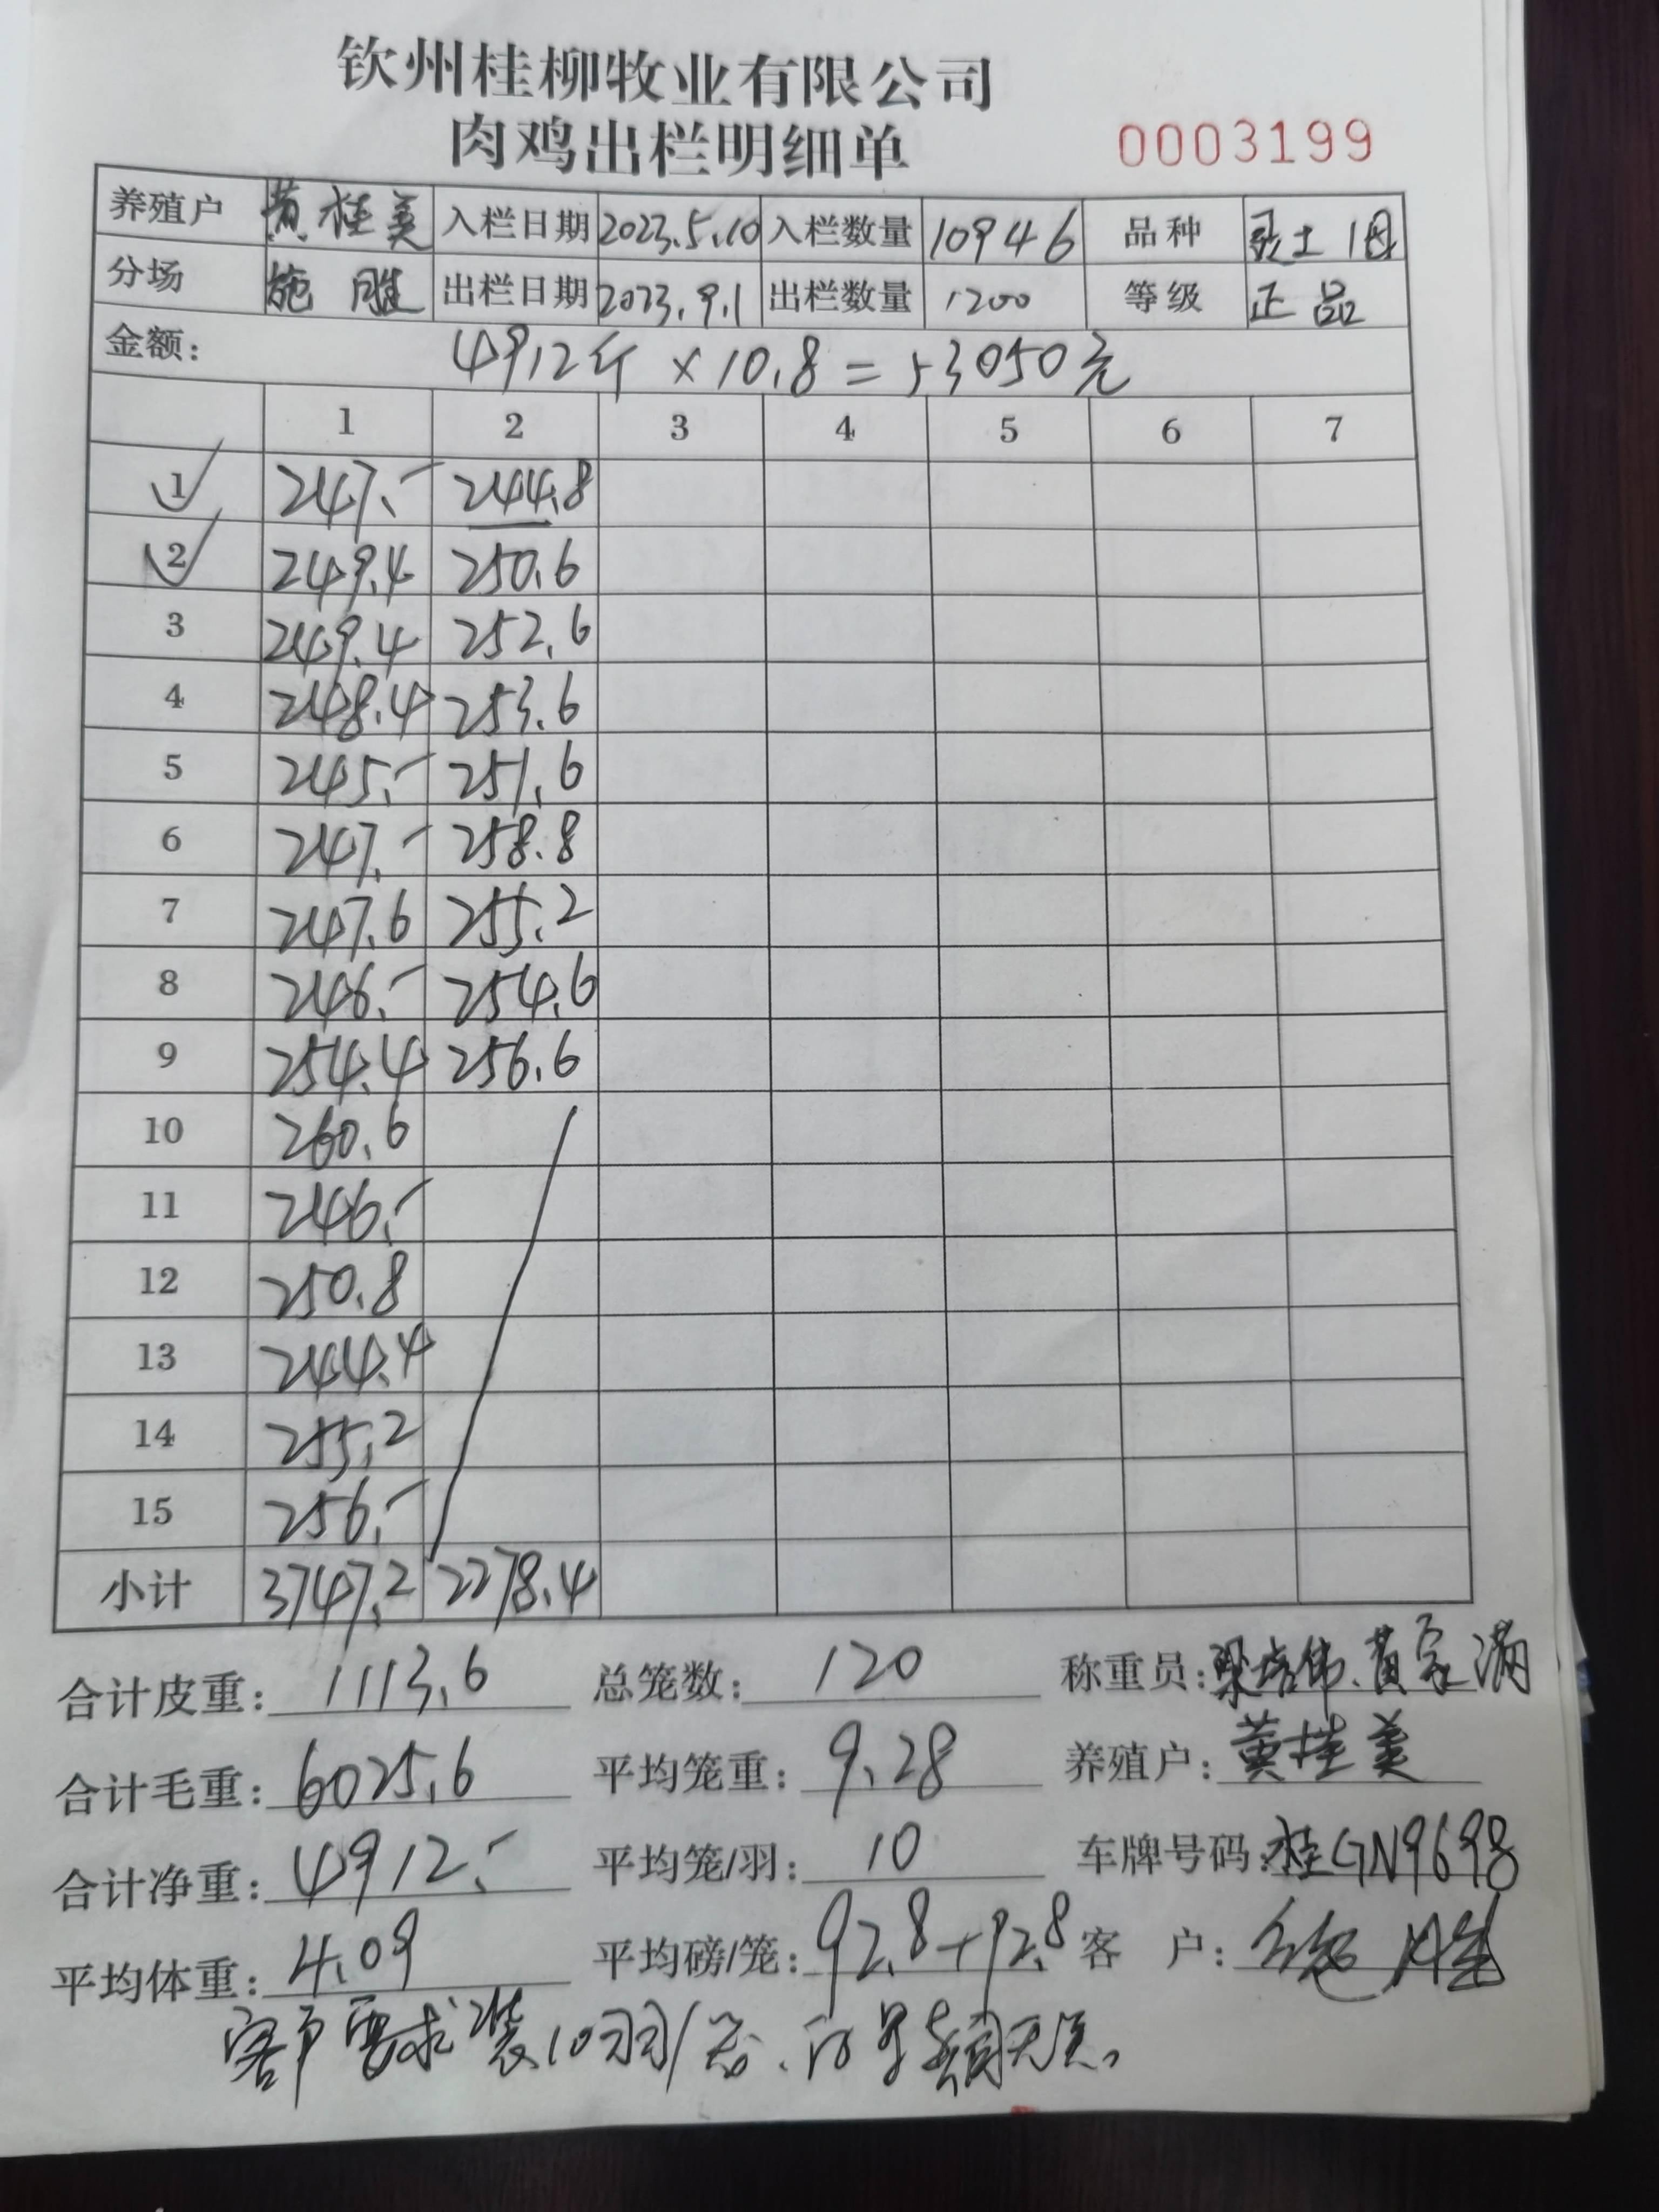 钦州桂柳牧业有限公司
肉鸡出栏明细单 0003199
养殖户 黄桂美 入栏日期 2023.5.10 入栏数量 10946 品种 土1母
分场 施胜 出栏日期 2023.9.1 出栏数量 1200 等级 正品
金额: 4912斤×10.8=53050元
1 2 3 4 5 6 7
1 247.- 244.8
2 249.4 250.6
3 249.4 252.6
4 248.4 253.6
5 245.- 251.6
6 247.- 258.8
7 247.6 255.2
8 246.- 254.6
9 254.4 256.6
10 260.6
11 246.-
12 250.8
13 244.4
14 255.2
15 256.-
小计 3747.2 2278.4
合计皮重: 1113.6 总笼数: 120 称重员: 梁培伟、黄家满
合计毛重: 6025.6 平均笼重: 9.28 养殖户: 黄桂美
合计净重: 4912.- 平均笼/羽: 10 车牌号码: 桂GN9698
平均体重: 4.09 平均磅/笼: 92.8+92.8 客户: 施胜
客户要求装10羽/笼、